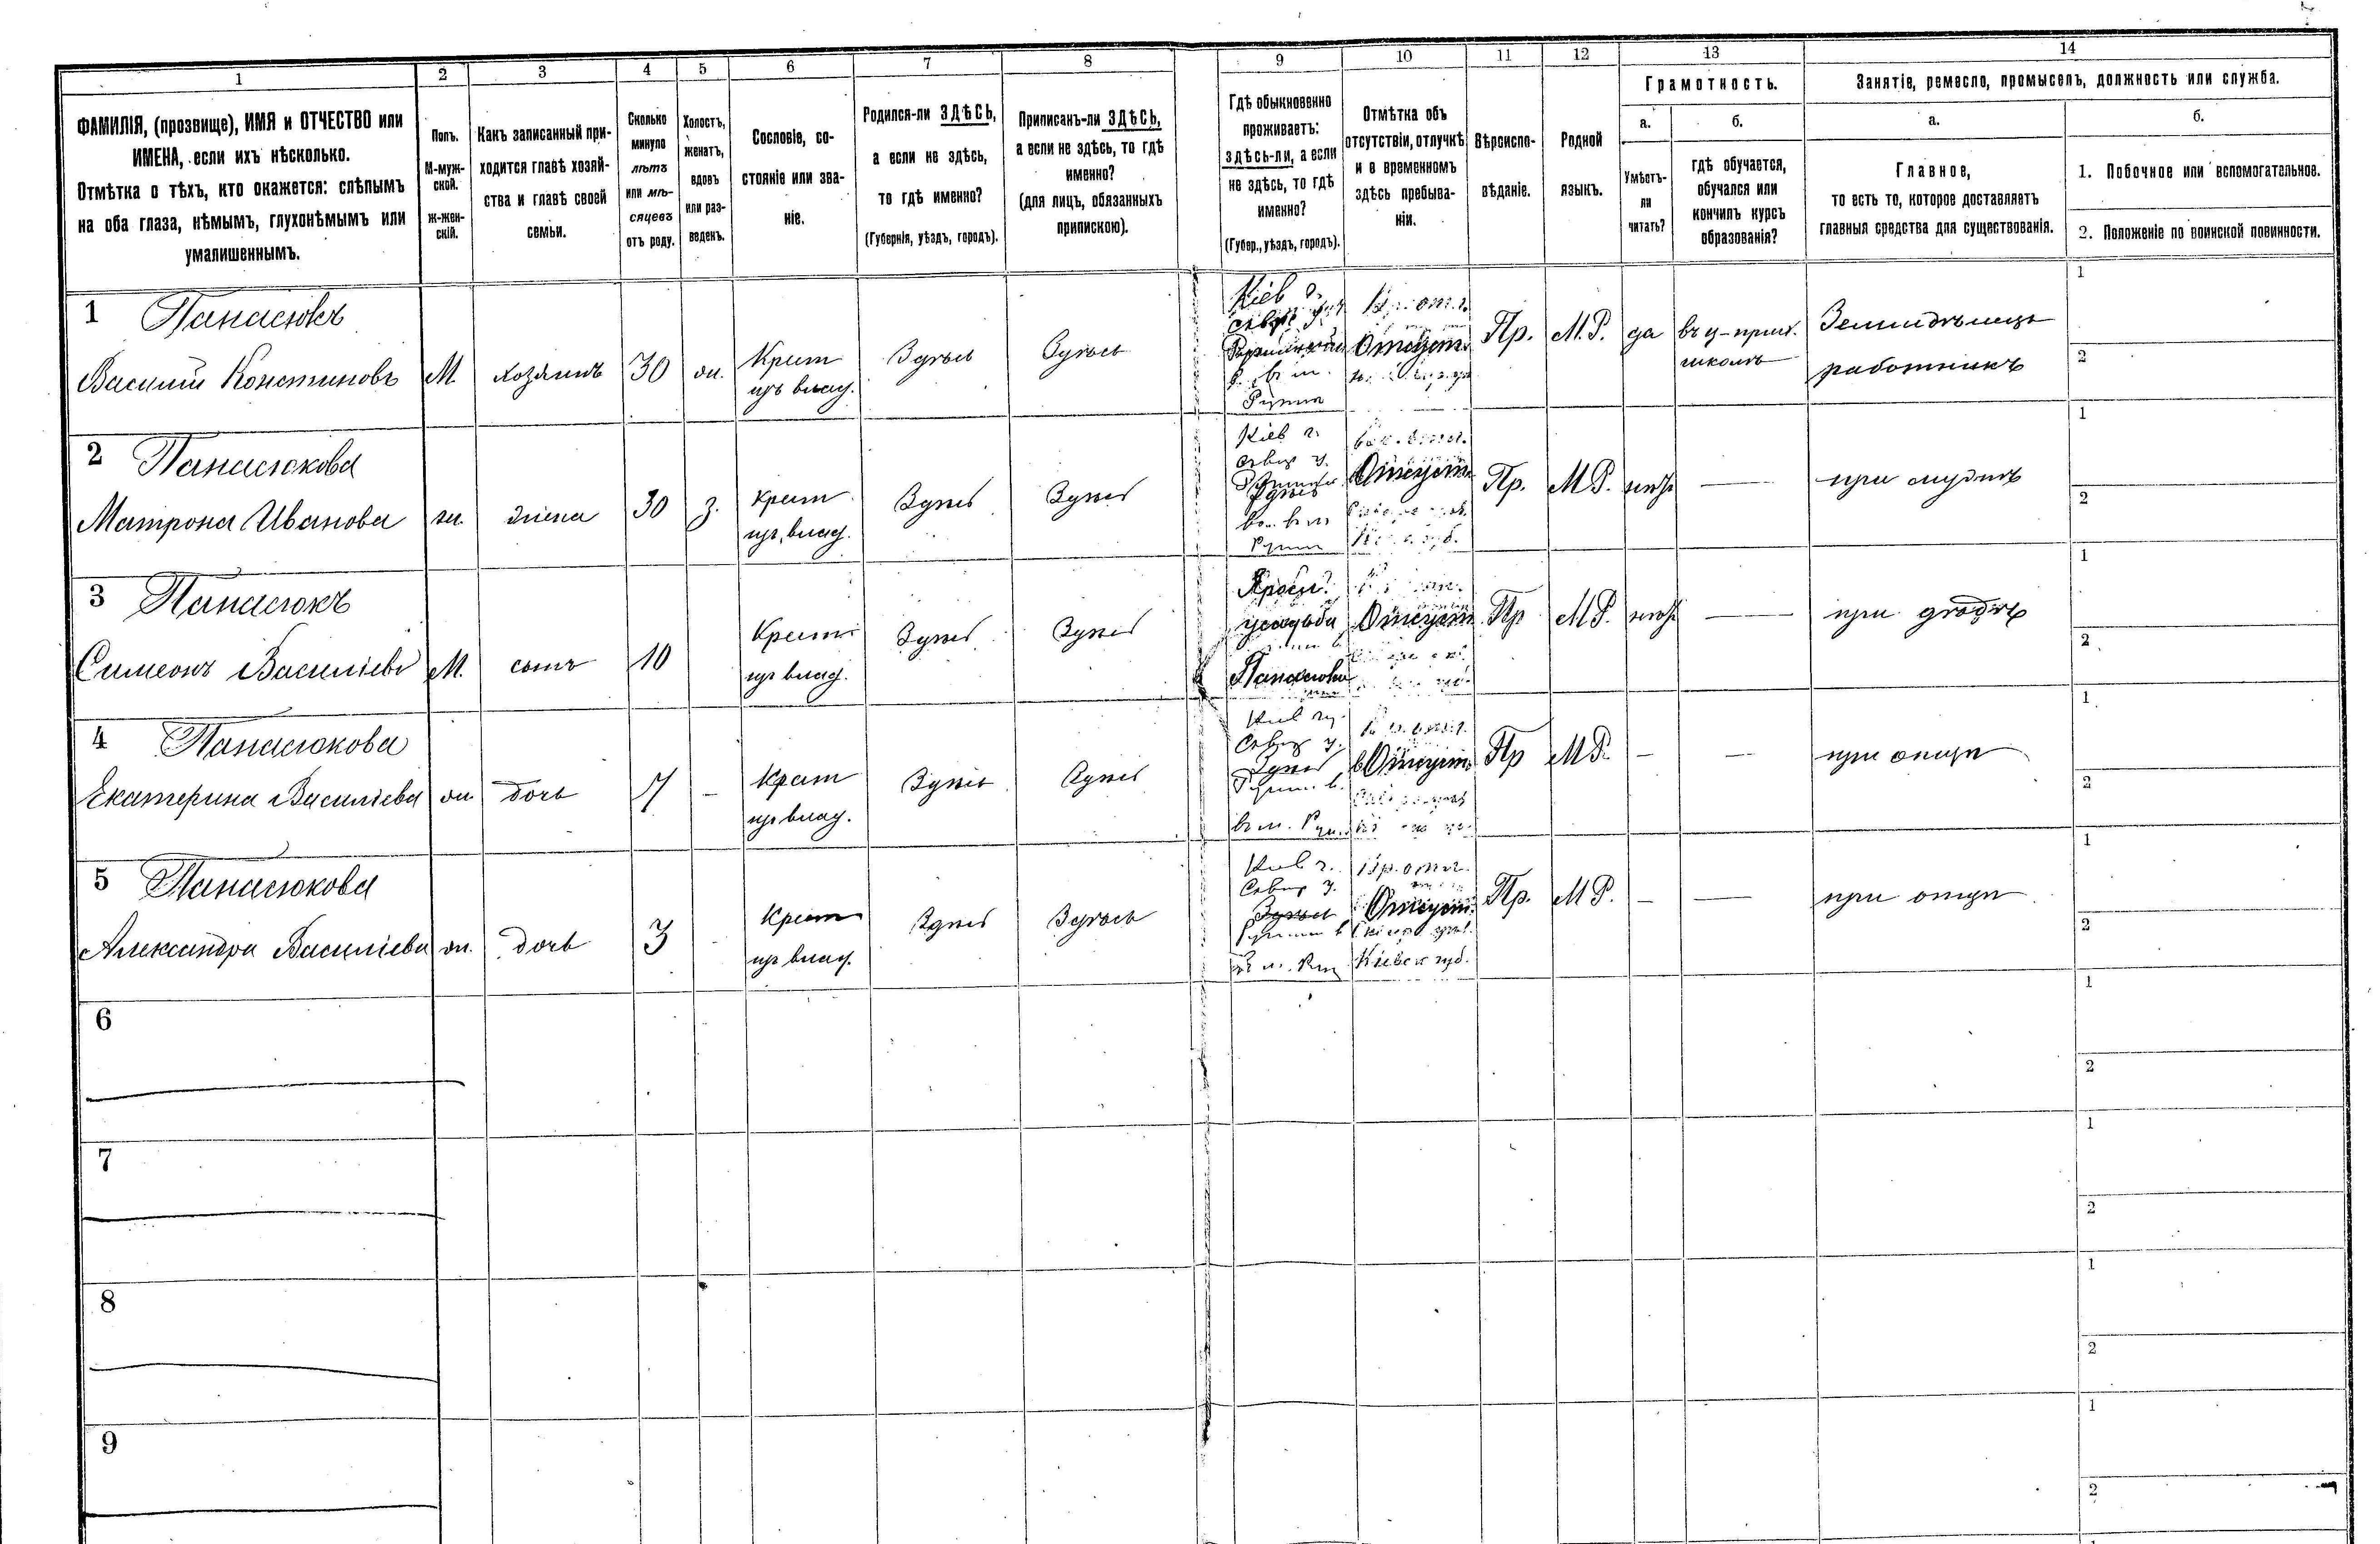 1 2 3 4 5 6 7 8 9 10 11 12 13 14
ФАМИЛІЯ, (прозвище), ИМЯ и ОТЧЕСТВО или
ИМЕНА, если ихъ нѣсколько.
Отмѣтка о тѣхъ, кто окажется: слѣпымъ
на оба глаза, нѣмымъ, глухонѣмымъ или
умалишеннымъ.
Полъ.
М-муж-
ской.
ж-жен-
скій.
Какъ записанный при-
ходится главѣ хозяй-
ства и главѣ своей
семьи.
Сколько
минуло
лѣтъ
или мѣ-
сяцевъ
отъ роду.
Холостъ,
женатъ,
вдовъ
или раз-
веденъ.
Сословіе, со-
стояніе или зва-
ніе.
Родился-ли ЗДѢСЬ,
а если не здѣсь,
то гдѣ именно?
(Губернія, уѣздъ, городъ).
Приписанъ-ли ЗДѢСЬ,
а если не здѣсь, то гдѣ
именно?
(для лицъ, обязанныхъ
припискою).
Гдѣ обыкновенно
проживаетъ:
здѣсь-ли, а если
не здѣсь, то гдѣ
именно?
(Губер., уѣздъ, городъ).
Отмѣтка объ
отсутствіи, отлучкѣ
и о временномъ
здѣсь пребыва-
ніи.
Вѣроиспо-
вѣданіе.
Родной
языкъ.
Грамотность.
а.
Умѣетъ-
ли
читать?
б.
гдѣ обучается,
обучался или
кончилъ курсъ
образованія?
Занятіе, ремесло, промыселъ, должность или служба.
а.
Главное,
то есть то, которое доставляетъ
главныя средства для существованія.
б.
1. Побочное или вспомогательное.
2. Положеніе по воинской повинности.
1 Панасюкъ
Василій Константиновъ М хозяинъ 30 ж.
Крест
изъ влад.
Здѣсь Здѣсь
Кіев г.
Отсутст.
Пр. М.Р. да
въ ц-прих.
школѣ
Земледѣлецъ
работникъ
1
2
2 Панасюкова
Матрона Иванова ж. жена 30 з.
Крест
изъ влад.
Здѣсь Здѣсь
Кіев г.
Отсутст.
Пр. М.Р. нѣтъ — при мужѣ
1
2
3 Панасюкъ
Симеонъ Василіевъ М. сынъ 10
Крест
изъ влад.
Здѣсь Здѣсь
усадьба
Отсутст
Панасюка
Пр М.Р. нѣтъ —
1
2
4 Панасюкова
Екатерина Василіева ж. дочь 7 —
Крест
изъ влад.
Здѣсь Здѣсь
Отсутст.
Пр М.Р. — — при отцѣ
1
2
5 Панасюкова
Александра Василіева ж. дочь 3
Крест
изъ влад.
Здѣсь Здѣсь
Кіев г.
Здѣсь
Отсутст.
Кіевск губ.
Пр. М.Р. — — при отцѣ
1
2
6
1
2
7
1
2
8
1
2
9
1
2